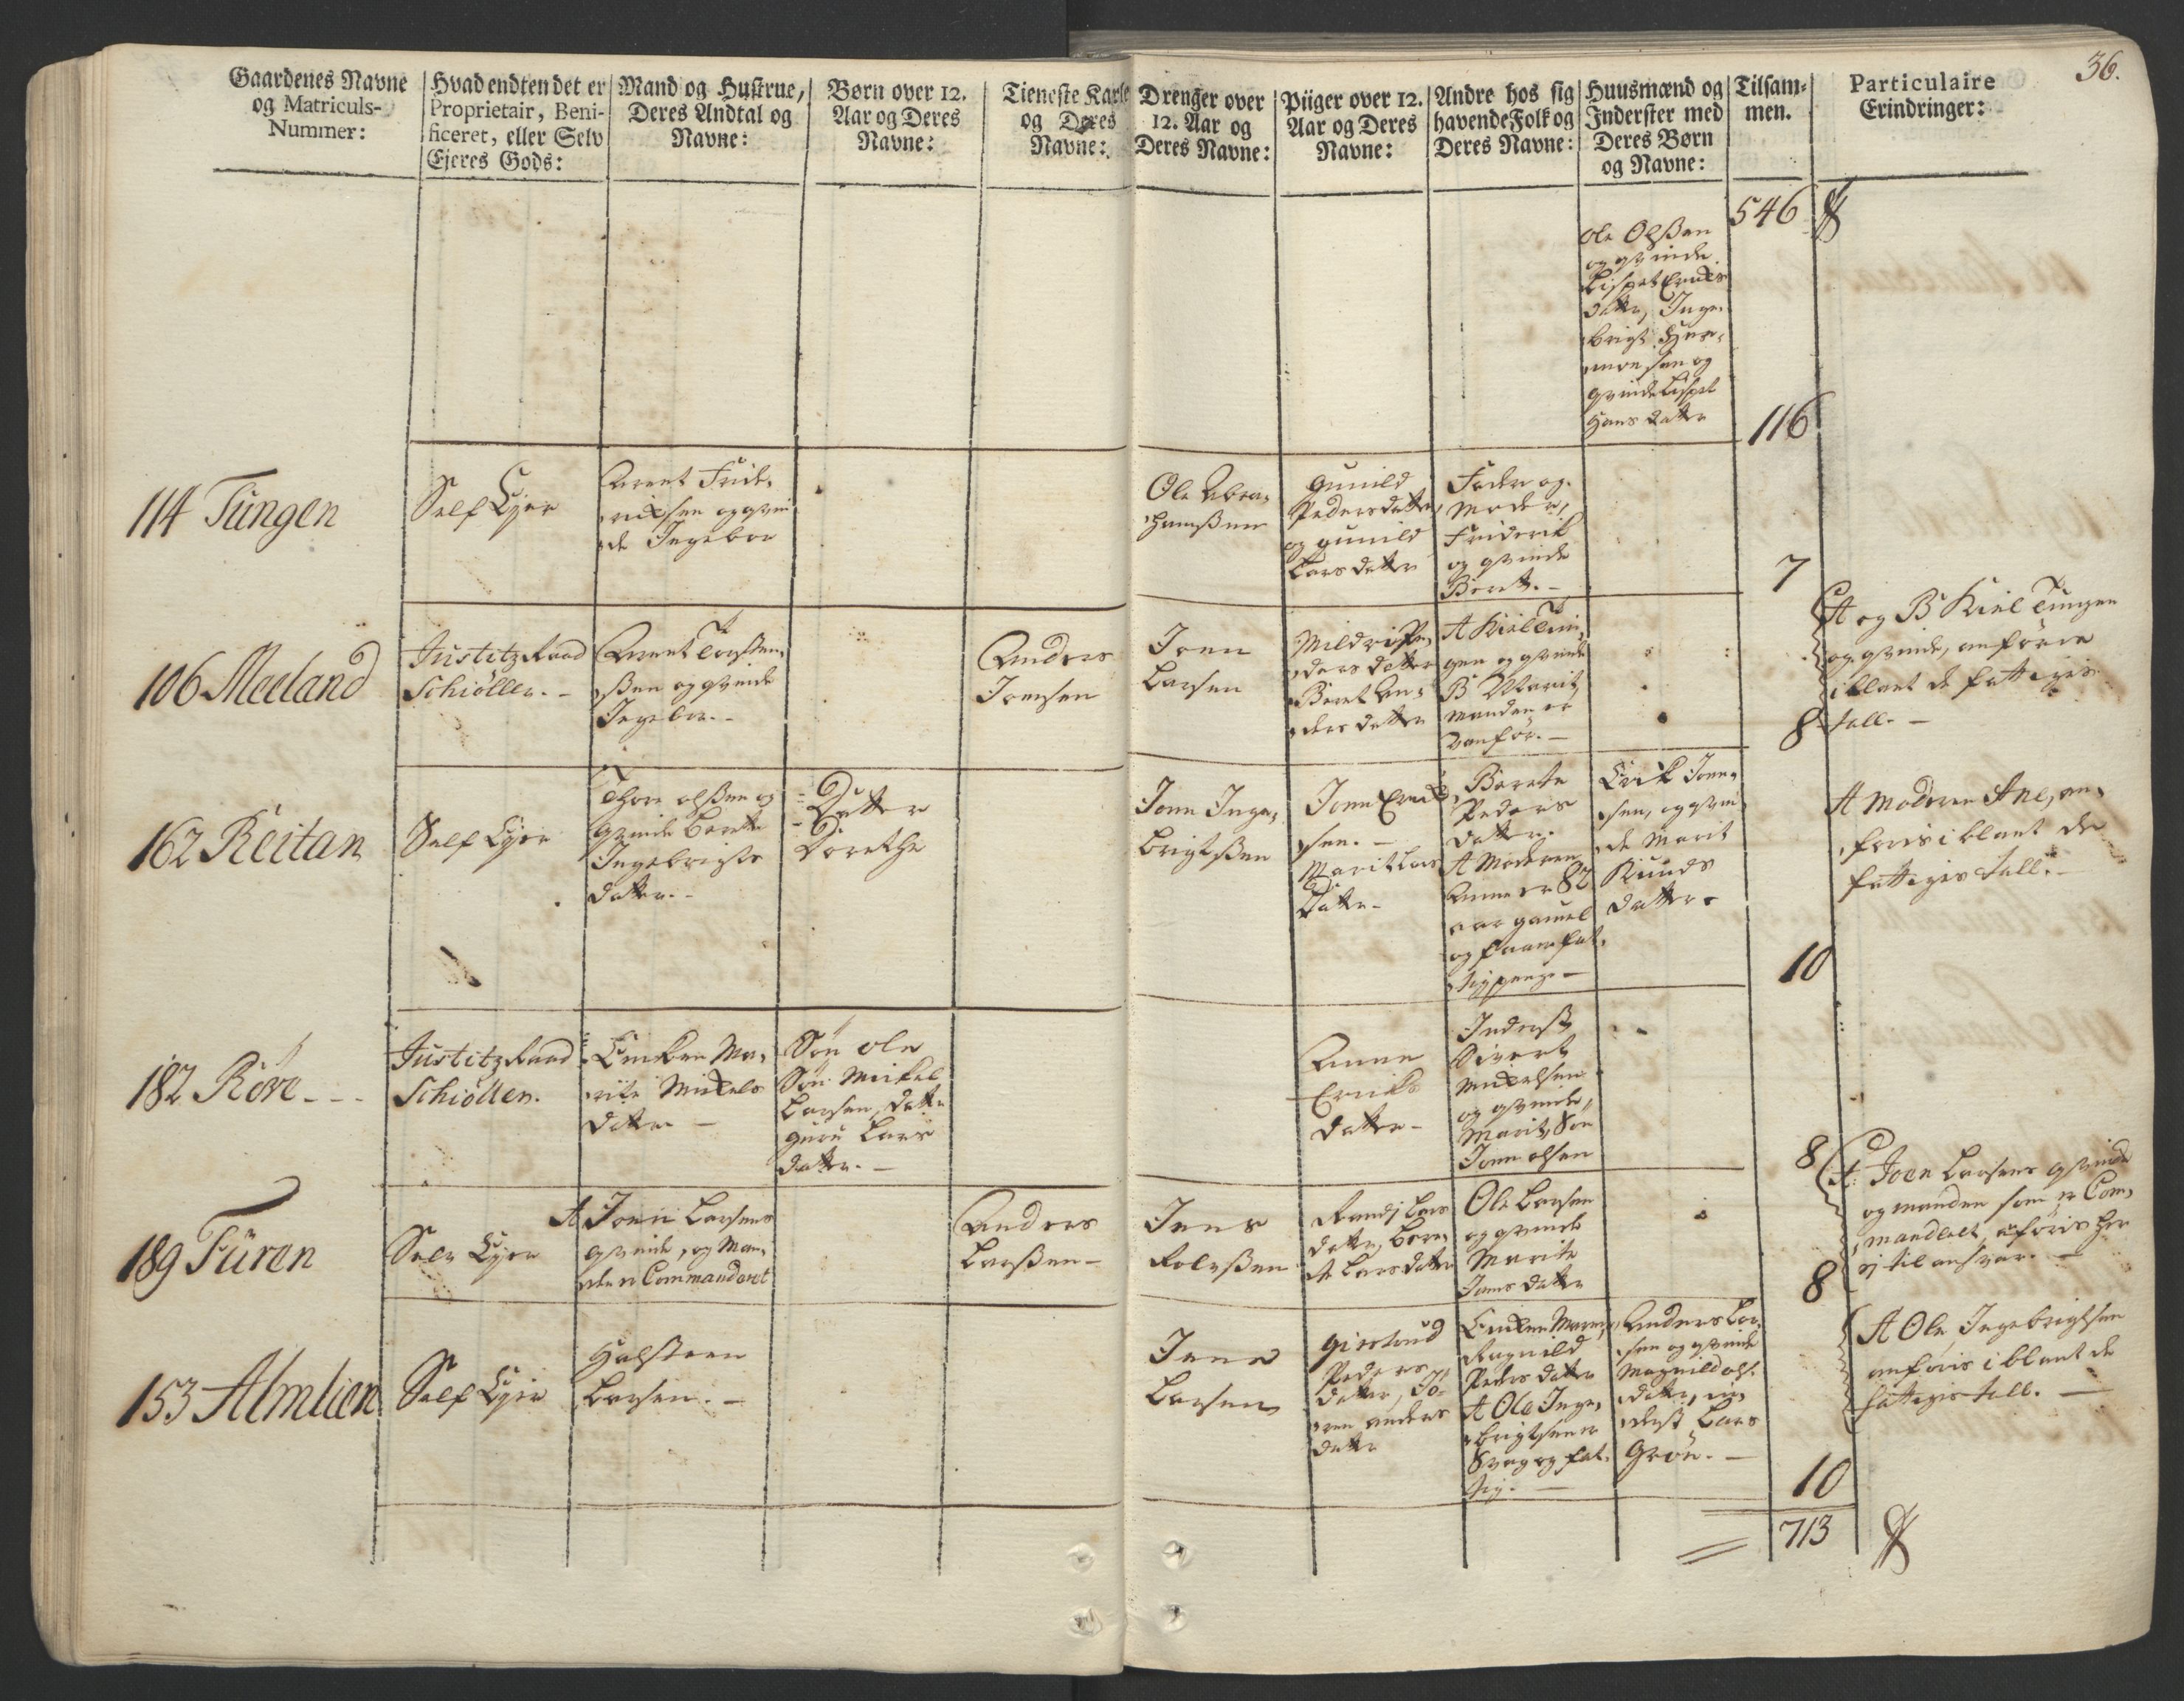 36.
Gaardenes Navne
og Matriculs-
Nummer:
Hvad endten det er
Proprietair, Beni-
ficeret, eller Selv
Ejeres Gods:
Mand og Hustrue,
Deres Andtal og
Navne:
Børn over 12.
Aar og Deres
Navne:
Tieneste Karle
og Deres
Navne:
Drenger over
12. Aar og
Deres Navne:
Piiger over 12.
Aar og Deres
Navne:
Andre hos sig
havende Folk og
Deres Navne:
Huusmænd og
Inderster med
Deres Børn
og Navne:
Tilsam-
men.
Particulaire
Erindringer:
546
Ole Olßen
og qvinde
Lispet Erichs
datter, Inge-
brigt
sen og
qvinde Lispet
Hans datter
116
114 Tüngen
Self Ejer
Arent Fride-
richsen og qvin-
de Ingebor
Ole Abra-
hamßen
Gunild
Peders datter,
og gunild
Lars datter
Fader og
Moder,
Friderik
og qvinde
Berit. -
7
106 Meeland
Justitz Raad
Schiøller. -
Arent Torsten-
ßen og qvinde
Ingebor. -
Anders
Joensen
Joen
Larsen
Mildri Pe-
ders datter
Beret An-
ders datter
A Kiel Tün-
gen og qvinde
B Marit
manden er
vanför. -
8
A og B Kiel Tüngen
og qvinde, anföres
iblant de fattiges
tall. -
162 Reitan
Self Ejer
Thore olßen og
qvinde Berette
Ingebrigts
datter. -
Datter
Dorethe
Jonn Inge-
brigtßen
Jonn Erich-
sen. -
Marit Lars
Datter -
Berete
Peders
datter.
A Moderen
Anne er 82
aar gamel
og faar fat-
tigpenge -
Erik Jonn-
sen, og qvin-
de Marit
Knuds
datter.
10
A Moderen Ane, an-
föres iblant de
fattiges tall. -
182 Röre - - -
Justitz Raad
Schiøller.
Enken Ma-
rite Michels
datter -
Søn Ole
Søn Mickel
Larsen, datter
guru Lars
datter. -
Anne
Eriks
datter -
Inderst
Sivert
Michelsen
og qvinde,
Marit, Søn
Jonn olsen
8
189 Türen
Selv Ejer
A Joen Larsens
qvinde, og Man-
den er Commanderet
Anders
Larßen -
Jens
Rolvßen
Randj Lars
datter, Bere-
te Lars datter
Ole Larsen
og qvinde
Marite
Jons datter
8
A: Joen Larsens qvinde
og manden som er Com-
manderet, aföris her
ej til ansvar. -
153 Almlien
Self Ejer
Halsteen
Larsen. -
Jens
Larsen
Giertrud
Peders
datter, Jö-
ren anders
datter
Enken Maren,
Ragnild
Peders datter
A Ole Inge-
brigtsen er
Svag og fat-
tig. -
Anders Lar-
sen og qvinde
Magnild ols-
datter, in-
derst Lars
Grön. -
10
A Ole Ingebrigtsen
anföris iblant de
fattiges tall. -
713